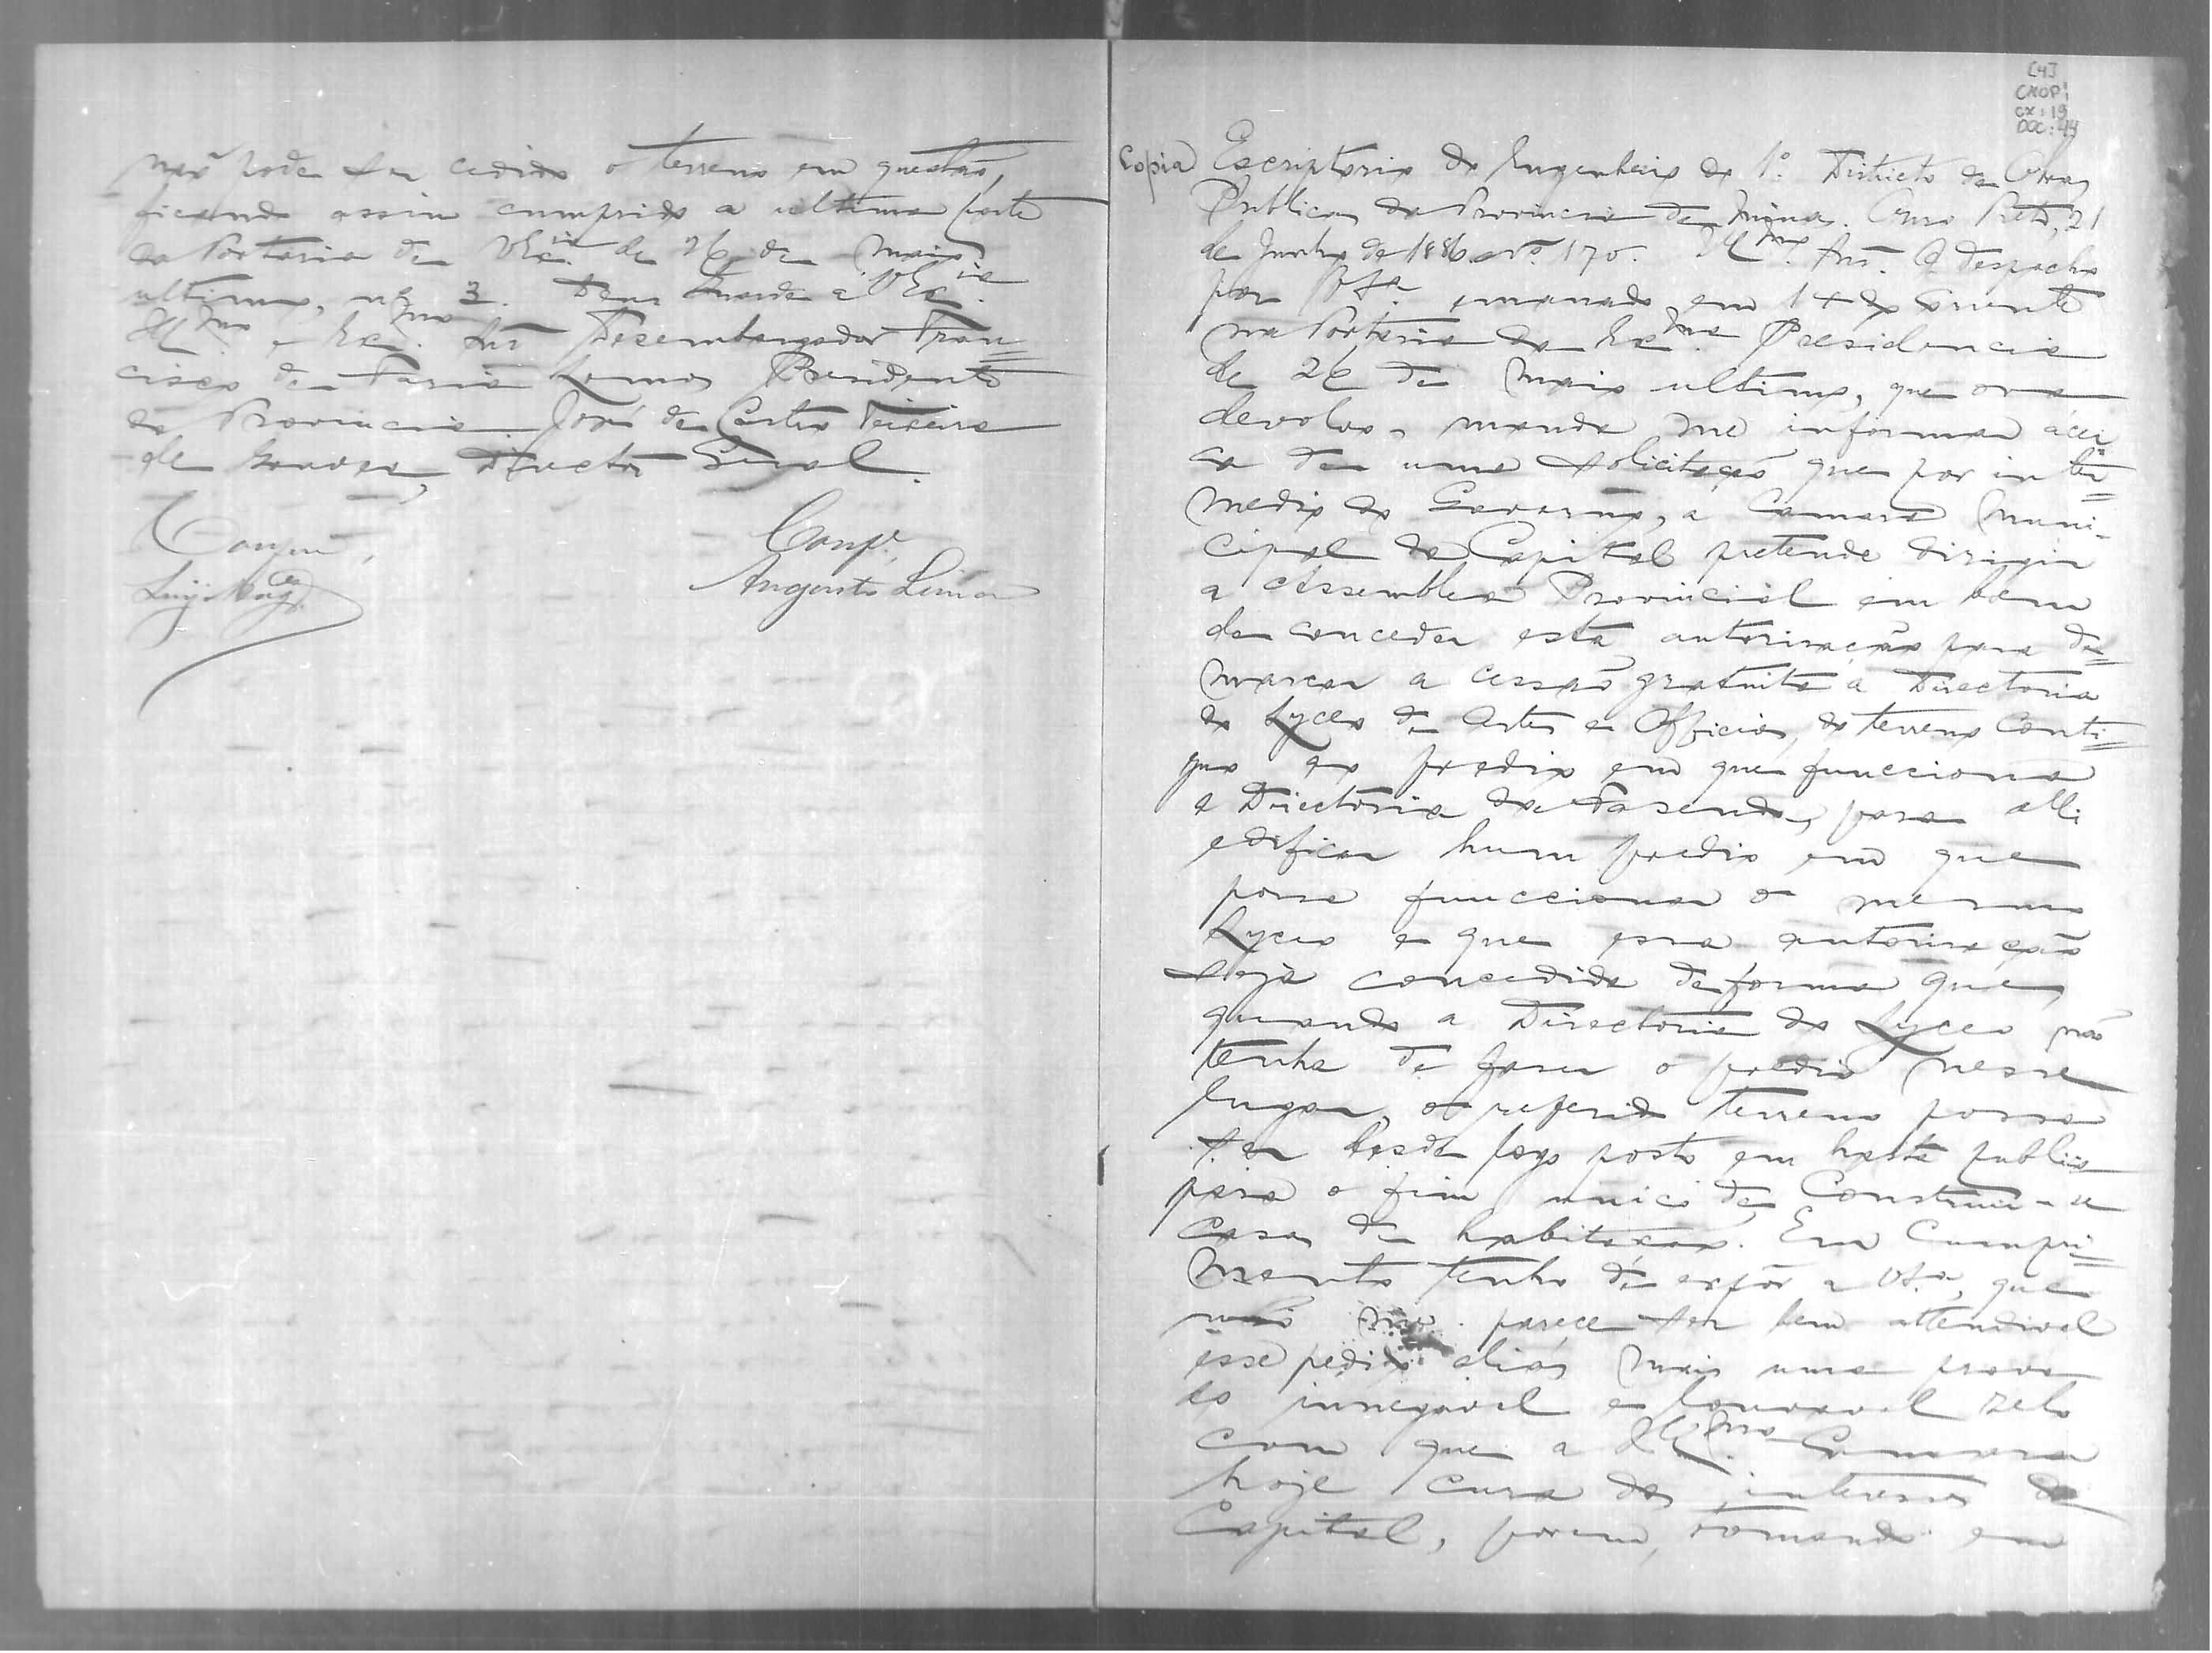 não pode ser cedido o terreno em questão,
ficando assim cumprida a ultima parte
da Portaria de VExcia de 26 de Maio
ultimo, nº 3. Deus Guarde a VExcia.
Illmo e Excmo. Snr Desembargador Fran=
cisco de Faria Lemos Presidente
da Provincia José de Castro Teixeira
de Gouvea, Director Geral.
Conf.e
Augusto Lima
[4]
CMOP
cx: 19
DOC: 44
Copia Escriptorio do Engenheiro do 1º. Districto de Obras
Publicas da Provincia de Minas. Ouro Preto, 21
de Junho de 1886 nº. 170. Illmo. Snr. O despacho
por VSa. emanado em 14 do corrente
na Portaria da Excma. Presidencia
de 26 de Maio ultimo, que ora
devolvo, manda me informar ácer
ca de uma solicitação que por inter=
medio do Governo, a Camara Muni-
cipal da Capital pretende dirigir
a Assemblea Provincial em bem
de conceder esta autorisação para de=
marcar a cessão gratuita a Directoria
do Lyceo de Artes e Officios, do terreno conti=
guo ao predio em que funcciona
a Directoria da Fasenda, para alli
edificar hum predio em que
possa funccionar o mesmo
Lyceo e que essa autorisação
seja concedida de forma que,
quando a Directoria do Lyceo não
tenha de faser o predio nesse
lugar, o referido terreno possa
ser desde logo posto em hasta publica
para o fim unico de, Construir-se
casas de habitação. Em Cumpri=
mento tenho de expôr a VSa, que
não me parece ser bem attendivel
esse pedido aliás mais uma prova
do innegavel e louvavel zelo
com que a Illma. Camara
hoje cura dos interesses da
Capital, porem, tomando em